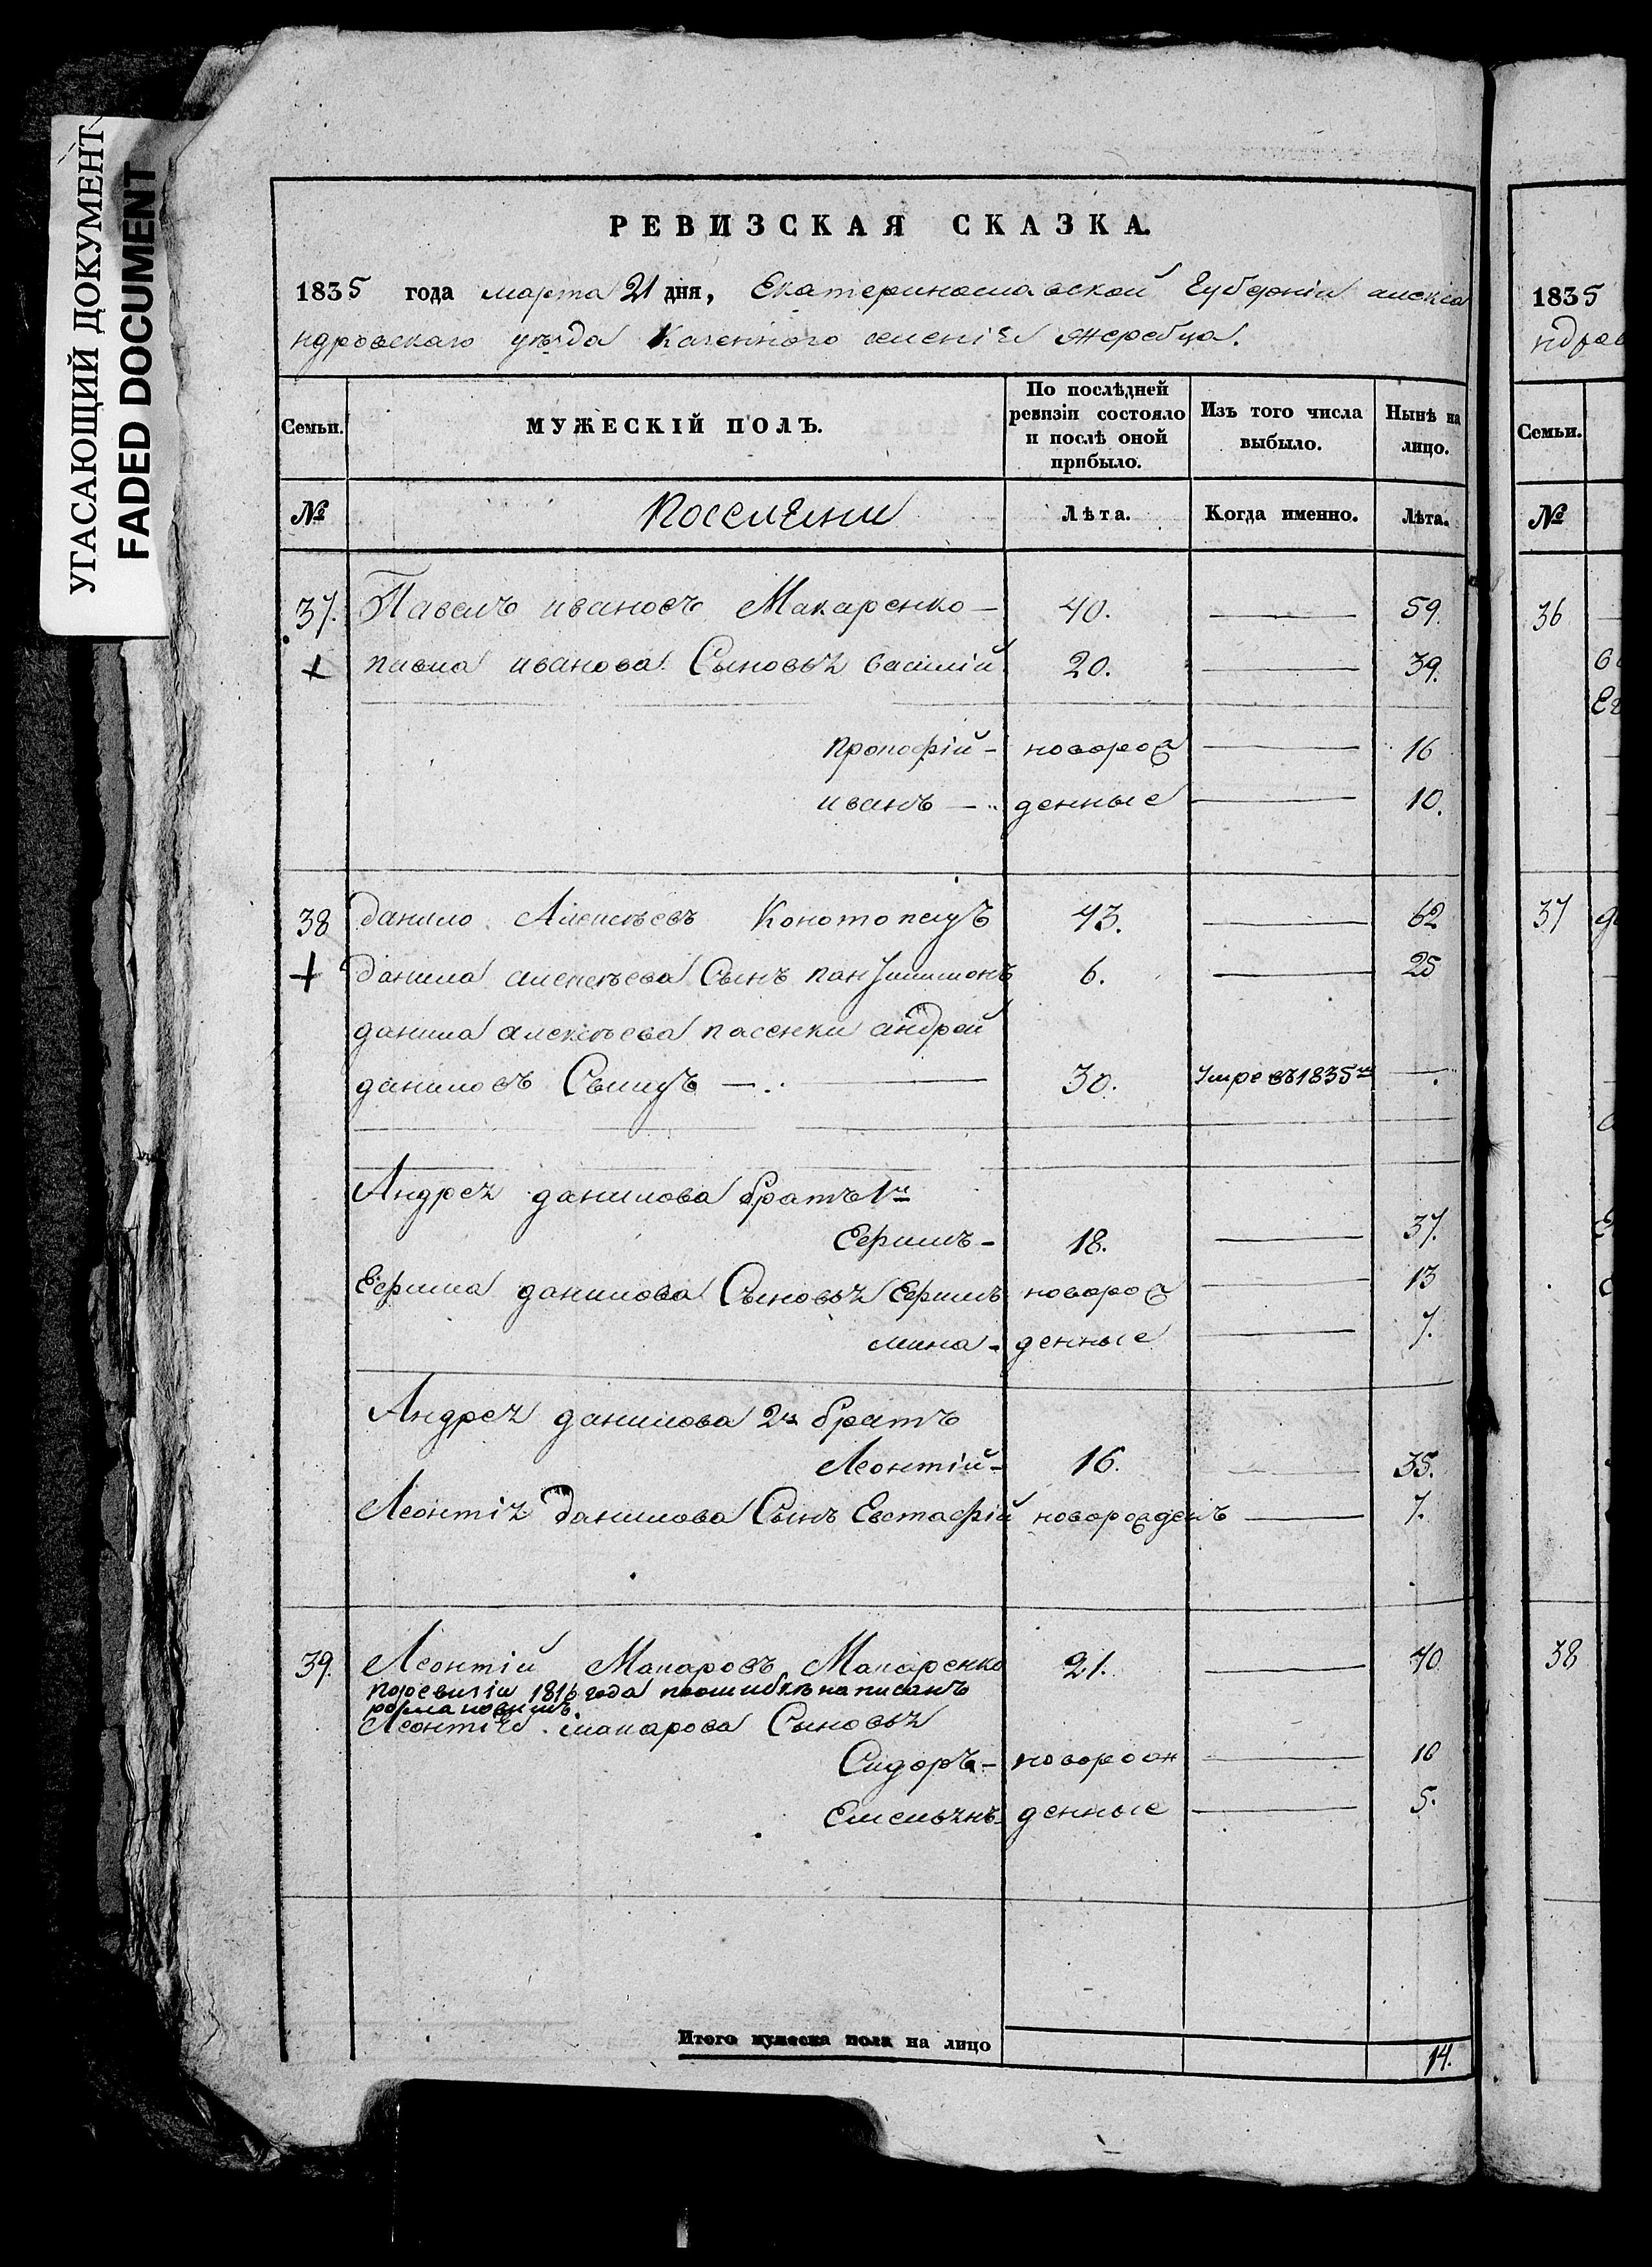 УГАСАЮЩИЙ ДОКУМЕНТ
FADED DOCUMENT
РЕВИЗСКАЯ СКАЗКА.
1835 года марта 21 дня, Екатеринославской Губерніи алекса
ндровскаго уѣзда Казенного селенія Жеребца.
Семьи. МУЖЕСКІЙ ПОЛЪ. По послѣдней ревизіи состояло и послѣ оной прибыло. Изъ того числа выбыло. Нынѣ на лицо.
№ Лѣта. Когда именно. Лѣта.
37. Павелъ ивановъ Макаренко — 40. — 59.
+ павла иванова Сыновья василій 20. — 39.
прокофій — новорож — 16
иванъ — денные — 10.
38 данило Алексѣевъ Конотопецъ 43. — 62
+ данила алексѣева Сынъ пантилимонъ 6. — 25
данила алексѣева пасенки андрей
даниловъ 30. Умре въ 1835 м —.
Андрея данилова братъ 1й
Ефимъ — 18. — 37.
Ефима данилова Сыновья Ефимъ новорож — 13
мина — денные — 7.
Андрея данилова 2й братъ
Леонтій — 16. — 35.
Леонтія данилова Сынъ Евстафій новорожденъ — 7.
39. Леонтій Макаровъ Макаренко 21. — 40
поревизіи 1816 года поошибкѣ написанъ
романовимъ.
Леонтія макарова Сыновья
Сидоръ — новорож — 10
Емельянъ — денные — 5.
Итого мужеска пола на лицо 14.
1835
ндров
Семьи.
№
36
37
38